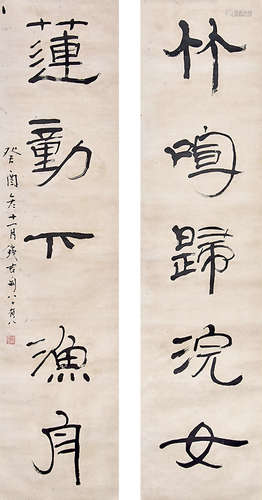 竹喧歸浣女
蓮動下漁舟
癸酉冬十一月錢君匋八十